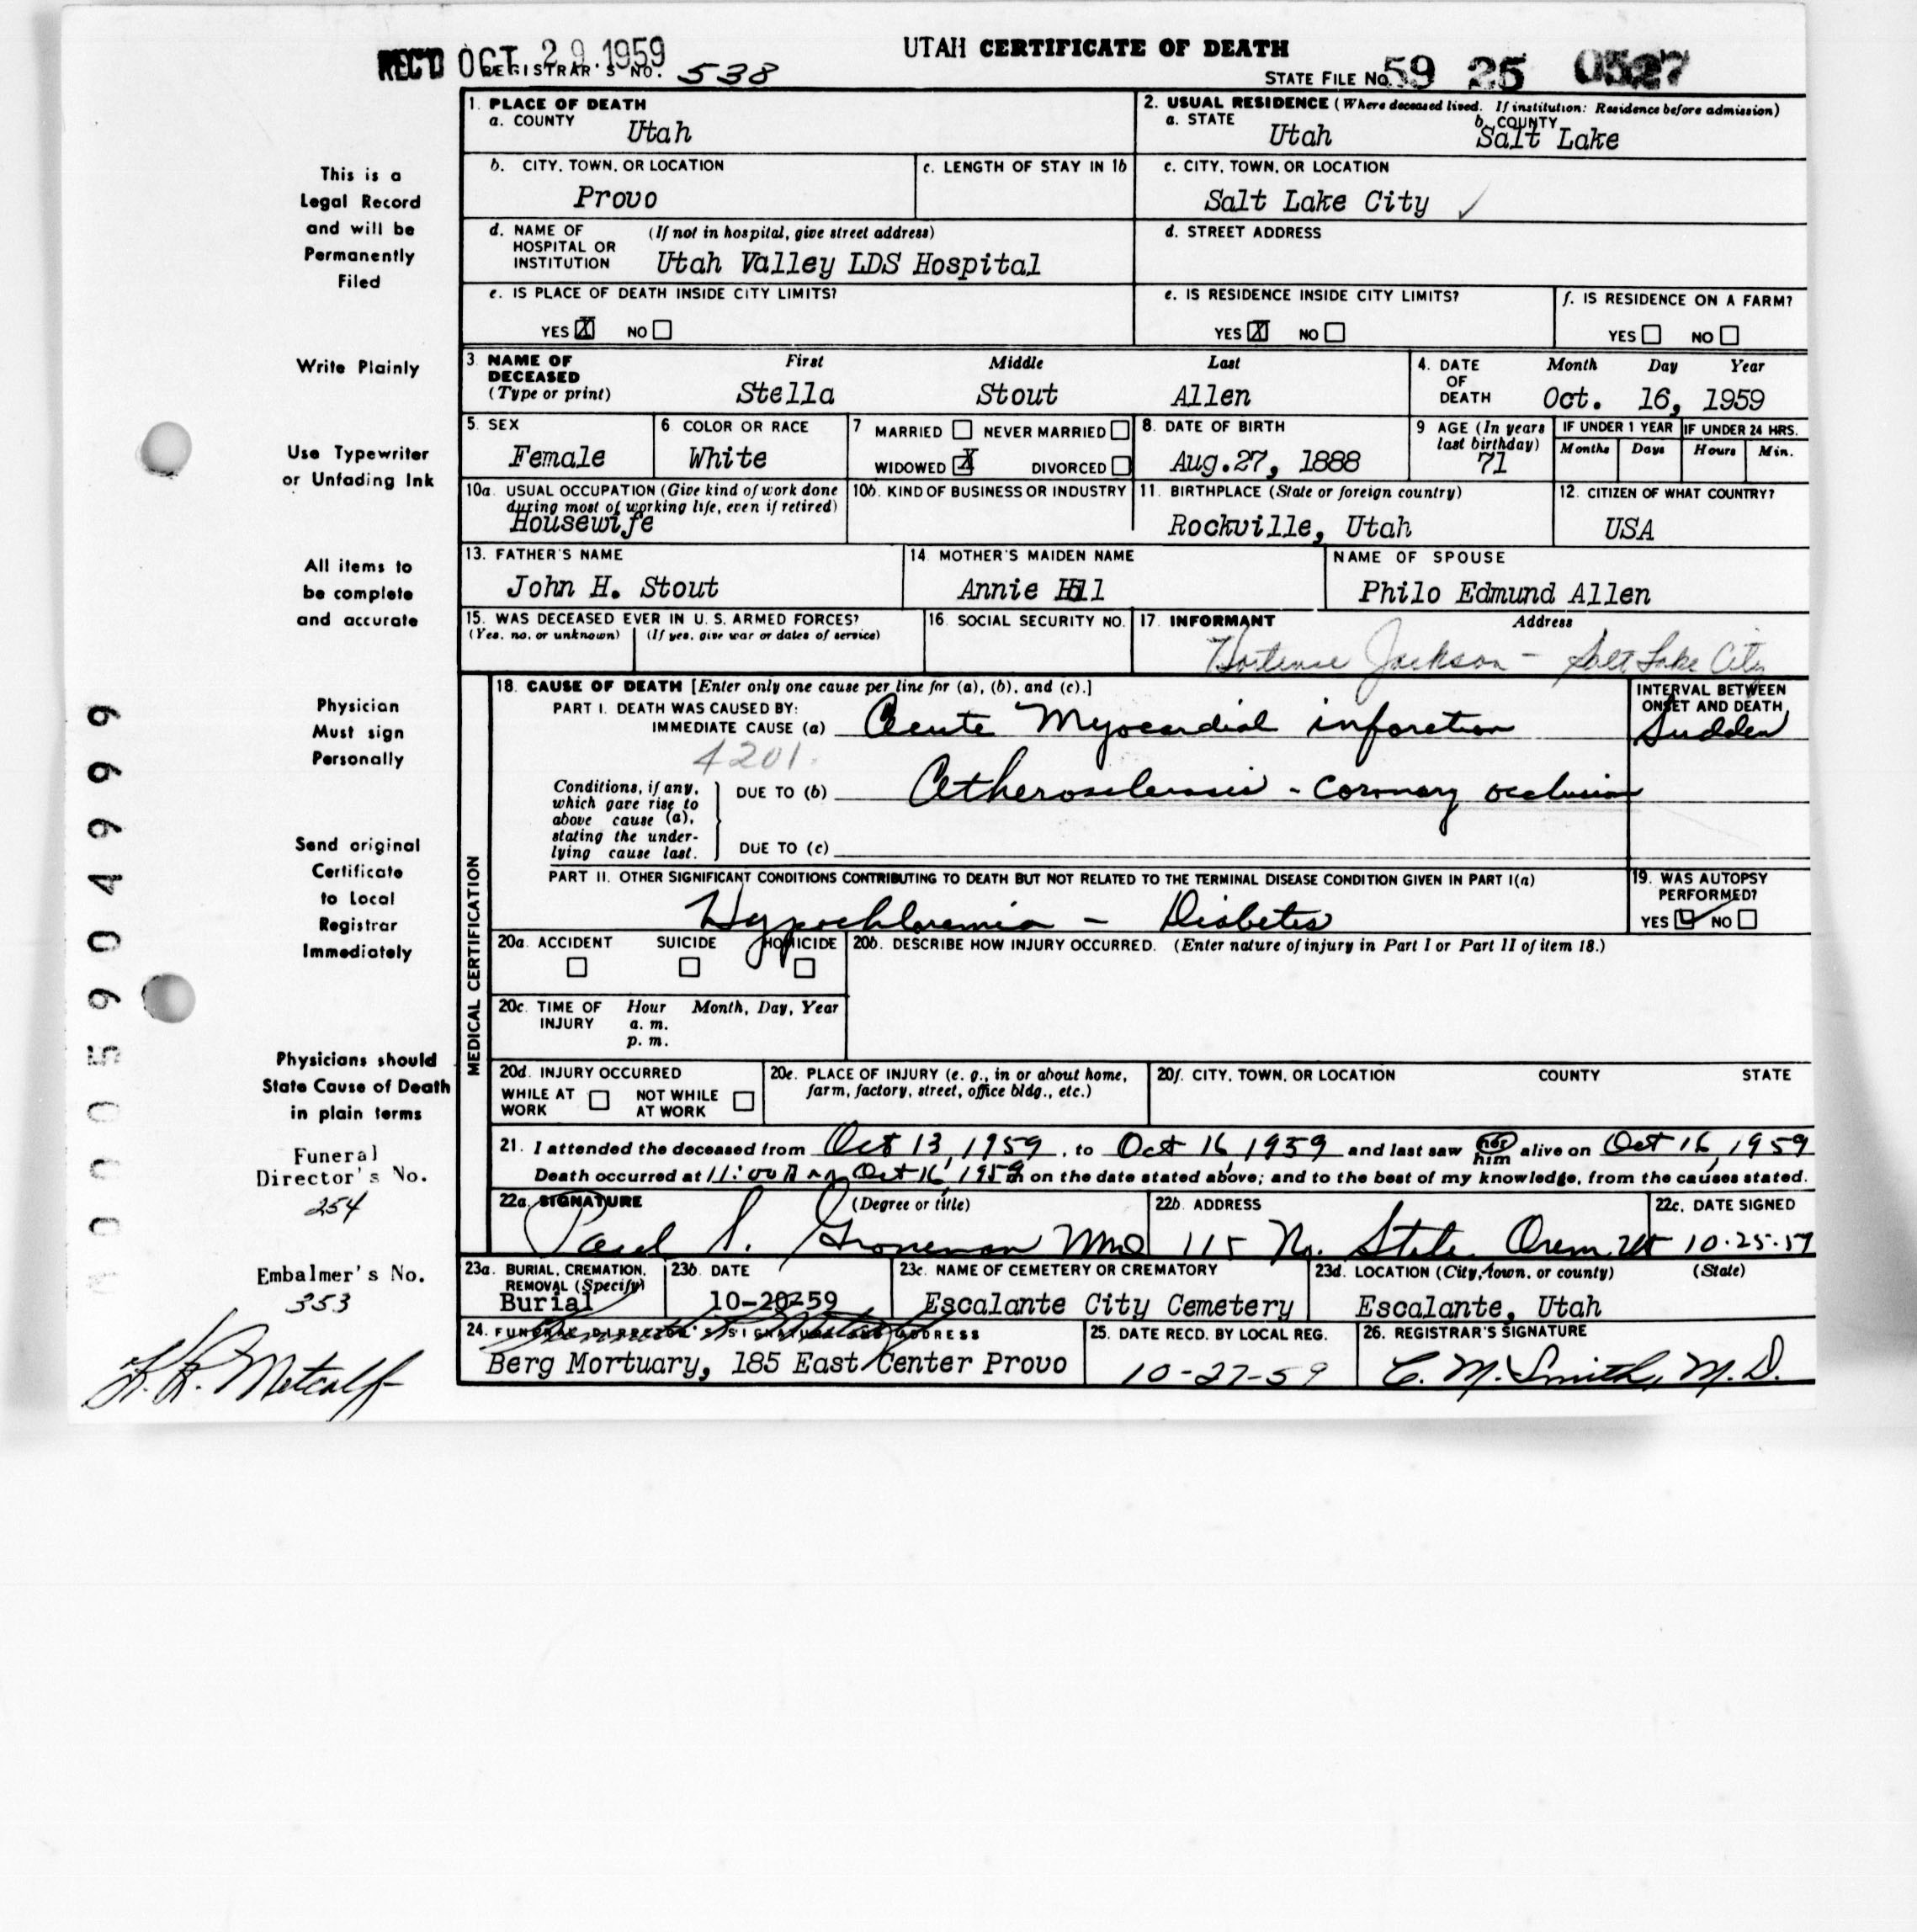 REC'D OCT 29 1959
UTAH CERTIFICATE OF DEATH
REGISTRAR'S NO. 538
STATE FILE NO. 59 25 0527
This is a
Legal Record
and will be
Permanently
Filed
Write Plainly
Use Typewriter
or Unfading Ink
All items to
be complete
and accurate
Physician
Must sign
Personally
Send original
Certificate
to Local
Registrar
Immediately
Physicians should
State Cause of Death
in plain terms
Funeral
Director's No.
254
Embalmer's No.
353
1. PLACE OF DEATH
a. COUNTY
Utah
2. USUAL RESIDENCE (Where deceased lived. If institution: Residence before admission)
a. STATE
Utah
b. COUNTY
Salt Lake
b. CITY, TOWN, OR LOCATION
Provo
c. LENGTH OF STAY IN 1b
c. CITY, TOWN, OR LOCATION
Salt Lake City ✓
d. NAME OF (If not in hospital, give street address)
HOSPITAL OR
INSTITUTION Utah Valley LDS Hospital
d. STREET ADDRESS
e. IS PLACE OF DEATH INSIDE CITY LIMITS?
YES X NO
e. IS RESIDENCE INSIDE CITY LIMITS?
YES X NO
f. IS RESIDENCE ON A FARM?
YES NO
3. NAME OF First Middle Last
DECEASED
(Type or print) Stella Stout Allen
4. DATE Month Day Year
OF
DEATH Oct. 16, 1959
5. SEX
Female
6 COLOR OR RACE
White
7 MARRIED NEVER MARRIED
WIDOWED X DIVORCED
8. DATE OF BIRTH
Aug.27, 1888
9 AGE (In years
last birthday)
71
IF UNDER 1 YEAR
Months Days
IF UNDER 24 HRS.
Hours Min.
10a. USUAL OCCUPATION (Give kind of work done
during most of working life, even if retired)
Housewife
10b. KIND OF BUSINESS OR INDUSTRY
11. BIRTHPLACE (State or foreign country)
Rockville, Utah
12. CITIZEN OF WHAT COUNTRY?
USA
13. FATHER'S NAME
John H. Stout
14 MOTHER'S MAIDEN NAME
Annie
NAME OF SPOUSE
Philo Edmund Allen
15. WAS DECEASED EVER IN U. S. ARMED FORCES?
(Yes, no, or unknown) (If yes, give war or dates of service)
16. SOCIAL SECURITY NO.
17. INFORMANT Address
Hortense Jackson - Salt Lake City
MEDICAL CERTIFICATION
18. CAUSE OF DEATH [Enter only one cause per line for (a), (b), and (c).]
PART I. DEATH WAS CAUSED BY:
IMMEDIATE CAUSE (a) Acute Myocardial infarction
4201.
INTERVAL BETWEEN
ONSET AND DEATH
Sudden
Conditions, if any,
which gave rise to
above cause (a),
stating the under-
lying cause last.
DUE TO (b) Atherosclerosis - coronary occlusion
DUE TO (c)
PART II. OTHER SIGNIFICANT CONDITIONS CONTRIBUTING TO DEATH BUT NOT RELATED TO THE TERMINAL DISEASE CONDITION GIVEN IN PART I(a)
Hypochloremia - Diabetes
19. WAS AUTOPSY
PERFORMED?
YES ✓ NO
20a. ACCIDENT SUICIDE HOMICIDE
20b. DESCRIBE HOW INJURY OCCURRED. (Enter nature of injury in Part I or Part II of item 18.)
20c. TIME OF Hour Month, Day, Year
INJURY a. m.
p. m.
20d. INJURY OCCURRED
WHILE AT NOT WHILE
WORK AT WORK
20e. PLACE OF INJURY (e. g., in or about home,
farm, factory, street, office bldg., etc.)
20f. CITY, TOWN, OR LOCATION COUNTY STATE
21. I attended the deceased from Oct 13, 1959, to Oct 16, 1959 and last saw her him alive on Oct 16, 1959
Death occurred at 11:00 Oct 16, 1959 m on the date stated above; and to the best of my knowledge, from the causes stated.
22a. SIGNATURE (Degree or title)
Paul S. MD
22b. ADDRESS
115 No. State Orem Ut
22c. DATE SIGNED
10-25-59
23a. BURIAL, CREMATION,
REMOVAL (Specify)
Burial
23b. DATE
10-20-59
23c. NAME OF CEMETERY OR CREMATORY
Escalante City Cemetery
23d. LOCATION (City, town, or county) (State)
Escalante, Utah
24. FUNERAL DIRECTOR'S SIGNATURE AND ADDRESS
Berg Mortuary, 185 East Center Provo
25. DATE RECD. BY LOCAL REG.
10-27-59
26. REGISTRAR'S SIGNATURE
C. M. Smith, M.D.
Metcalf